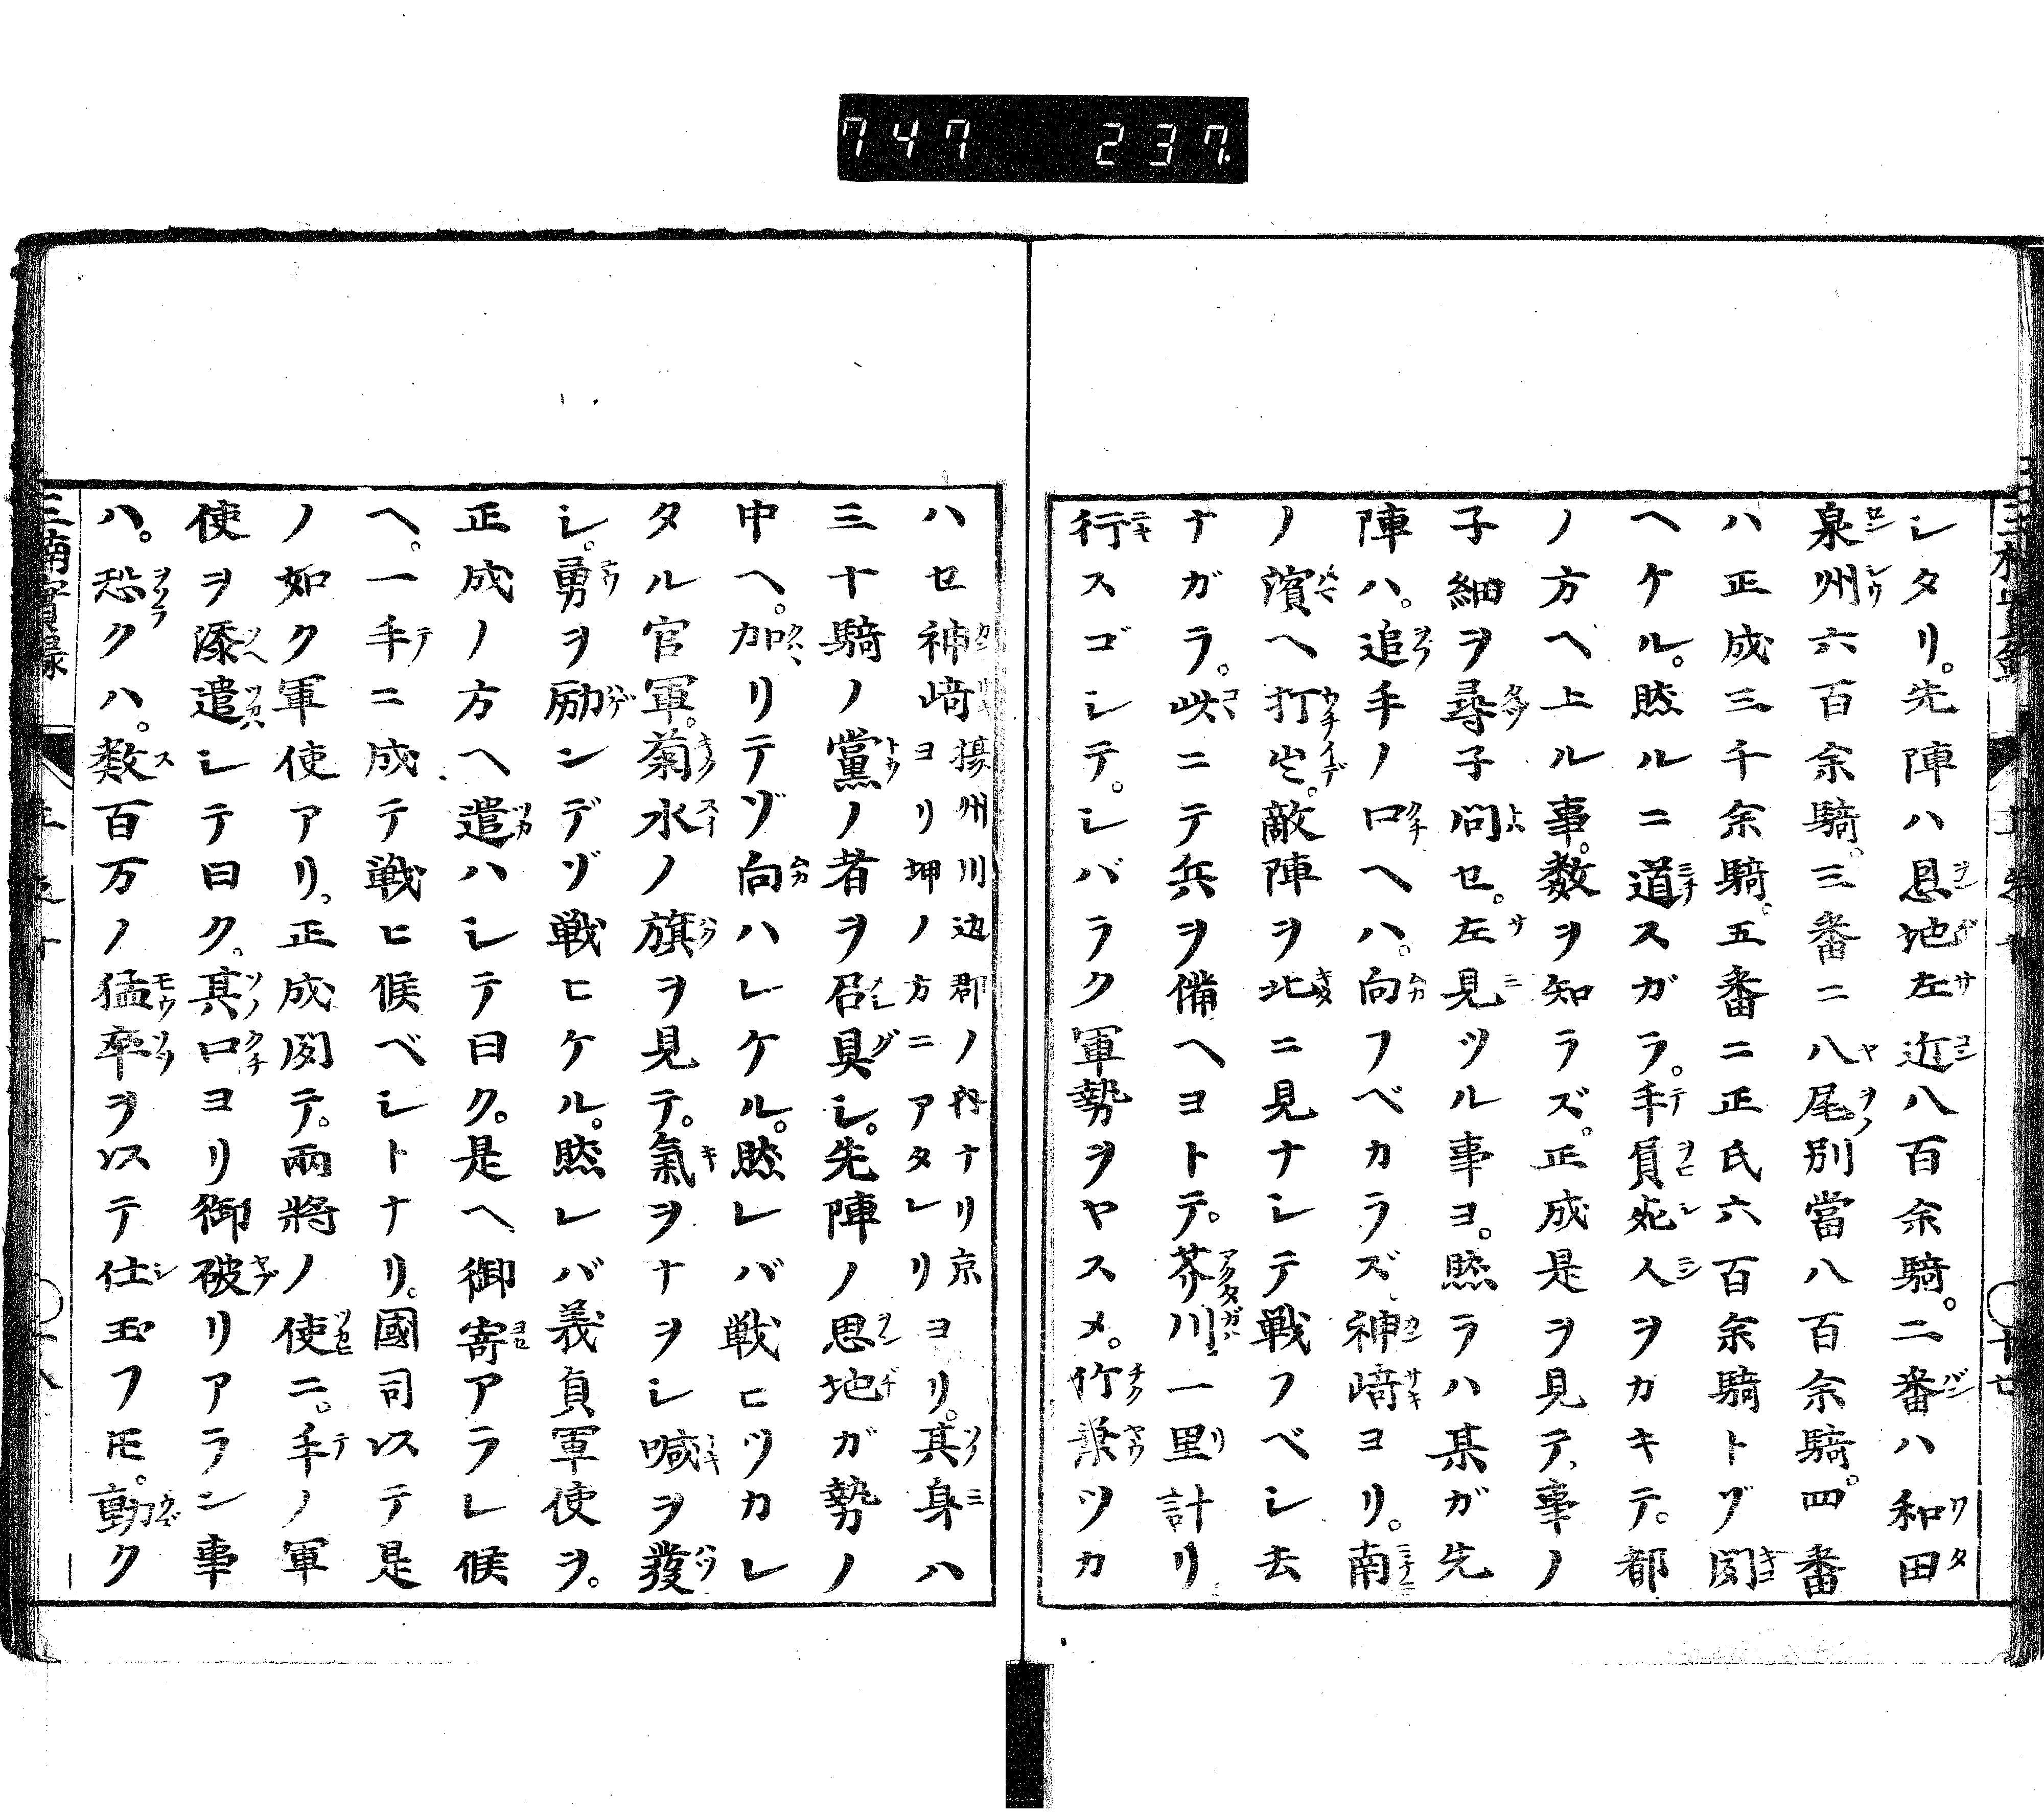 747 237.
シタリ。先陣ハ恩地左近八百余騎。二番ハ和田
泉州六百余騎。三番ニ八尾別當八百余騎。四番
ハ正成三千余騎。五番ニ正氏六百余騎トゾ聞
ヘケル。然ルニ道スガラ。手負死人ヲカキテ。都
ノ方ヘ上ル事。数ヲ知ラズ。正成是ヲ見テ、事ノ
子細ヲ尋子問セ。左見ツル事ヨ。然ラハ某ガ先
陣ハ。追手ノ口ヘハ。向フベカラズ、神﨑ヨリ。南
ノ濱ヘ打出。敵陣ヲ北ニ見ナシテ戦フベシ去
ナガラ。此ニテ兵ヲ備ヘヨトテ。芥川ニ一里計リ
行スゴシテ。シバラク軍勢ヲヤスメ。竹葉ツカ
ハセ神﨑 揚州川辺郡ノ内ナリ京
ヨリ坤ノ方ニアタレリ ヨリ。其身ハ
三十騎ノ黨ノ者ヲ召具シ。先陣ノ思地ガ勢ノ
中ヘ。加リテゾ向ハレケル。然レバ戦ヒツカレ
タル官軍。菊水ノ旗ヲ見テ。氣ヲナヲシ喊ヲ發
シ。勇ヲ励ンデゾ戦ヒケル。然レバ義負軍使ヲ。
正成ノ方ヘ遣ハシテ曰ク。是ヘ御寄アラレ候
ヘ。一手ニ成テ戦ヒ候ベシトナリ。國司以テ是
ノ如ク軍使アリ。正成聞テ。兩將ノ使ニ。手ノ軍
使ヲ添遣シテ曰ク。其口ヨリ御破リアラン事
ハ。恐クハ。数百万ノ猛卒ヲ以テ仕玉フ𪜈。動ク